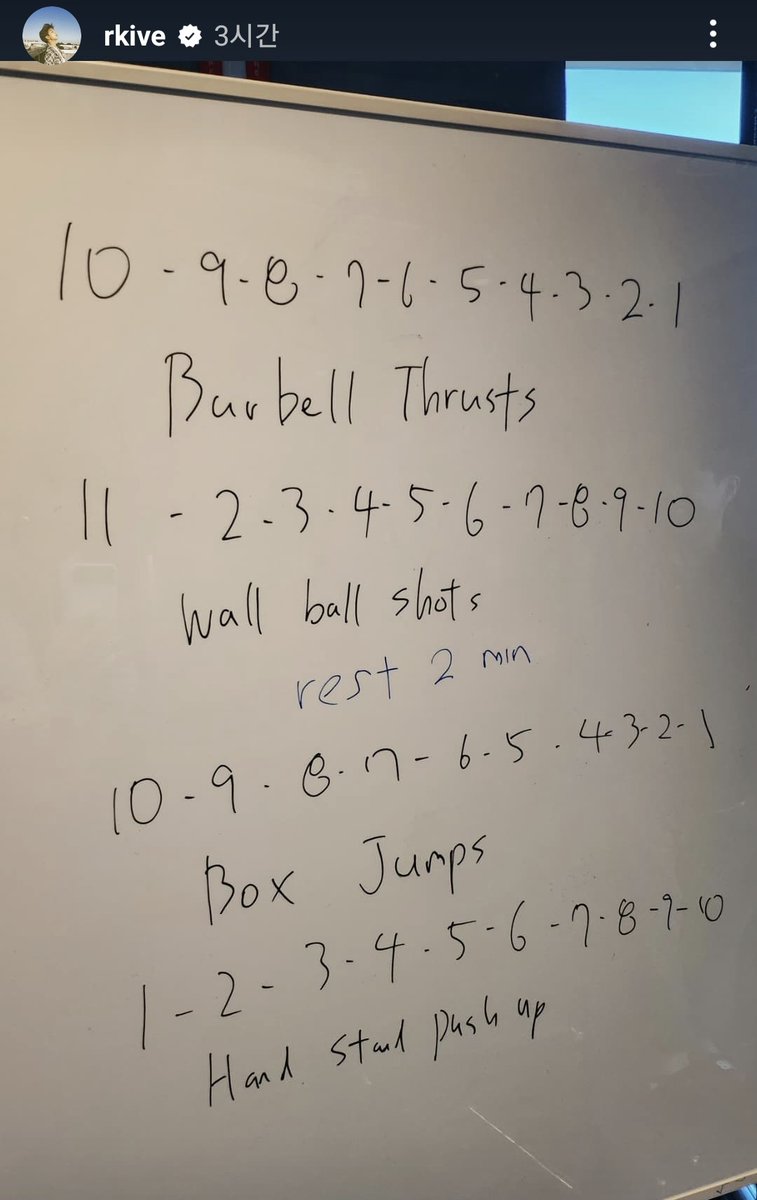 rkive 3시간
10 - 9 - 8 - 7 - 6 - 5 - 4 - 3 - 2 - 1
Barbell Thrusts
11 - 2 - 3 - 4 - 5 - 6 - 7 - 8 - 9 - 10
Wall ball shots
rest 2 min
10 - 9 - 8 - 7 - 6 - 5 - 4 - 3 - 2 - 1
Box Jumps
1 - 2 - 3 - 4 - 5 - 6 - 7 - 8 - 9 - 10
Hand stand push up